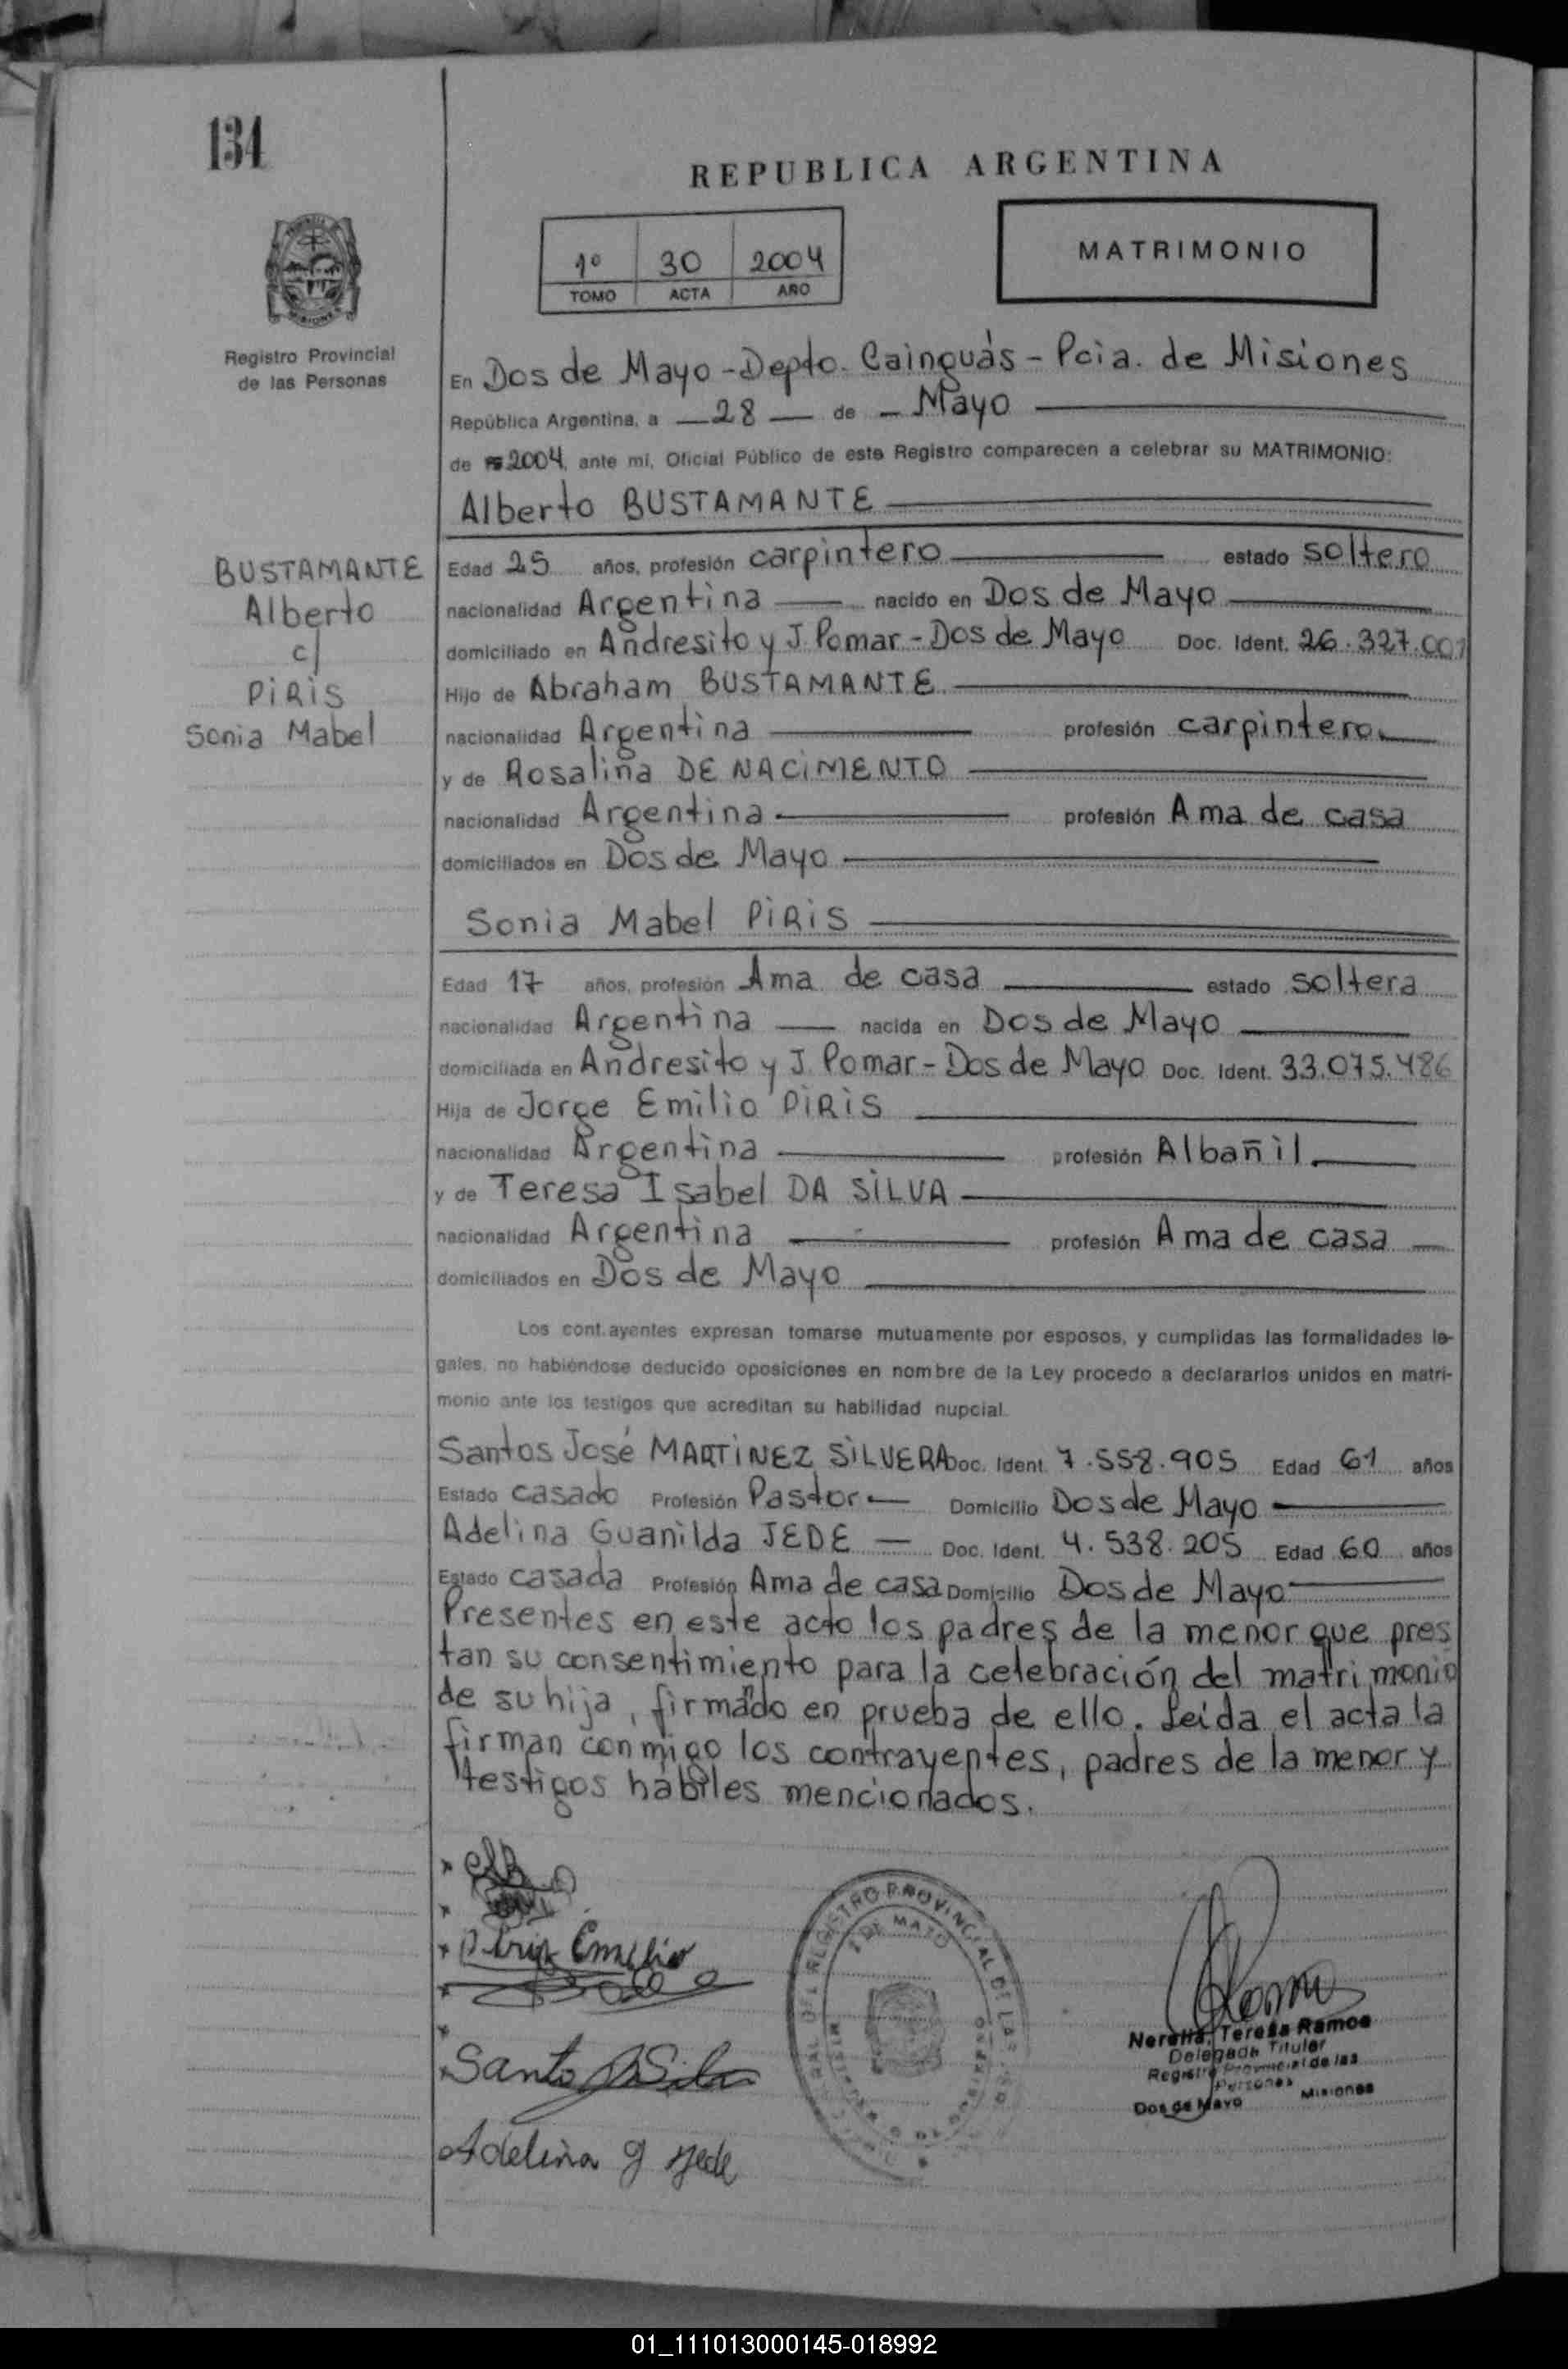 134
REPUBLICA ARGENTINA
1º 30 2004
TOMO ACTA AÑO
MATRIMONIO
Registro Provincial
de las Personas
En Dos de Mayo - Depto. Cainguás - Pcia. de Misiones
República Argentina, a 28 de Mayo
de 2004, ante mí, Oficial Público de este Registro comparecen a celebrar su MATRIMONIO:
Alberto BUSTAMANTE
BUSTAMANTE
Alberto
c/
PIRIS
Sonia Mabel
Edad 25 años, profesión carpintero estado soltero
nacionalidad Argentina nacido en Dos de Mayo
domiciliado en Andresito y J. Pomar - Dos de Mayo Doc. Ident. 26.327.001
Hijo de Abraham BUSTAMANTE
nacionalidad Argentina profesión carpintero
y de Rosalina DE NACIMENTO
nacionalidad Argentina profesión Ama de casa
domiciliados en Dos de Mayo
Sonia Mabel PIRIS
Edad 17 años, profesión Ama de casa estado soltera
nacionalidad Argentina nacida en Dos de Mayo
domiciliada en Andresito y J. Pomar - Dos de Mayo Doc. Ident. 33.075.486
Hija de Jorge Emilio PIRIS
nacionalidad Argentina profesión Albañil
y de Teresa Isabel DA SILVA
nacionalidad Argentina profesión Ama de casa
domiciliados en Dos de Mayo
Los cont.ayentes expresan tomarse mutuamente por esposos, y cumplidas las formalidades le-
gales, no habiéndose deducido oposiciones en nombre de la Ley procedo a declararlos unidos en matri-
monio ante los testigos que acreditan su habilidad nupcial.
Santos José MARTINEZ SILVERA Doc. Ident. 7.558.905 Edad 61 años
Estado casado Profesión Pastor Domicilio Dos de Mayo
Adelina Guanilda JEDE Doc. Ident. 4.538.205 Edad 60 años
Estado casada Profesión Ama de casa Domicilio Dos de Mayo
Presentes en este acto los padres de la menor que pres
tan su consentimiento para la celebración del matrimonio
de su hija, firmando en prueba de ello. Leida el acta la
firman conmigo los contrayentes, padres de la menor y
testigos hábiles mencionados.
Piris Emilio
REGISTRO PROVINCIAL DE LAS
2 DE MAYO
Nerella Teresa Ramos
Delegada Titular
Registro Provincial de las
Personas
Dos de Mayo Misiones
Adelina G Jede
01_111013000145-018992